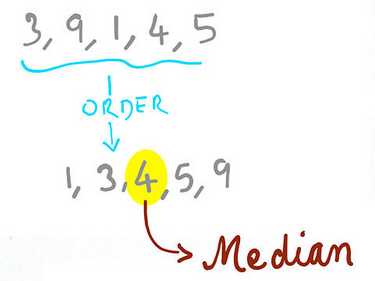 3, 9, 1, 4, 5
ORDER
1, 3, 4, 5, 9
Median